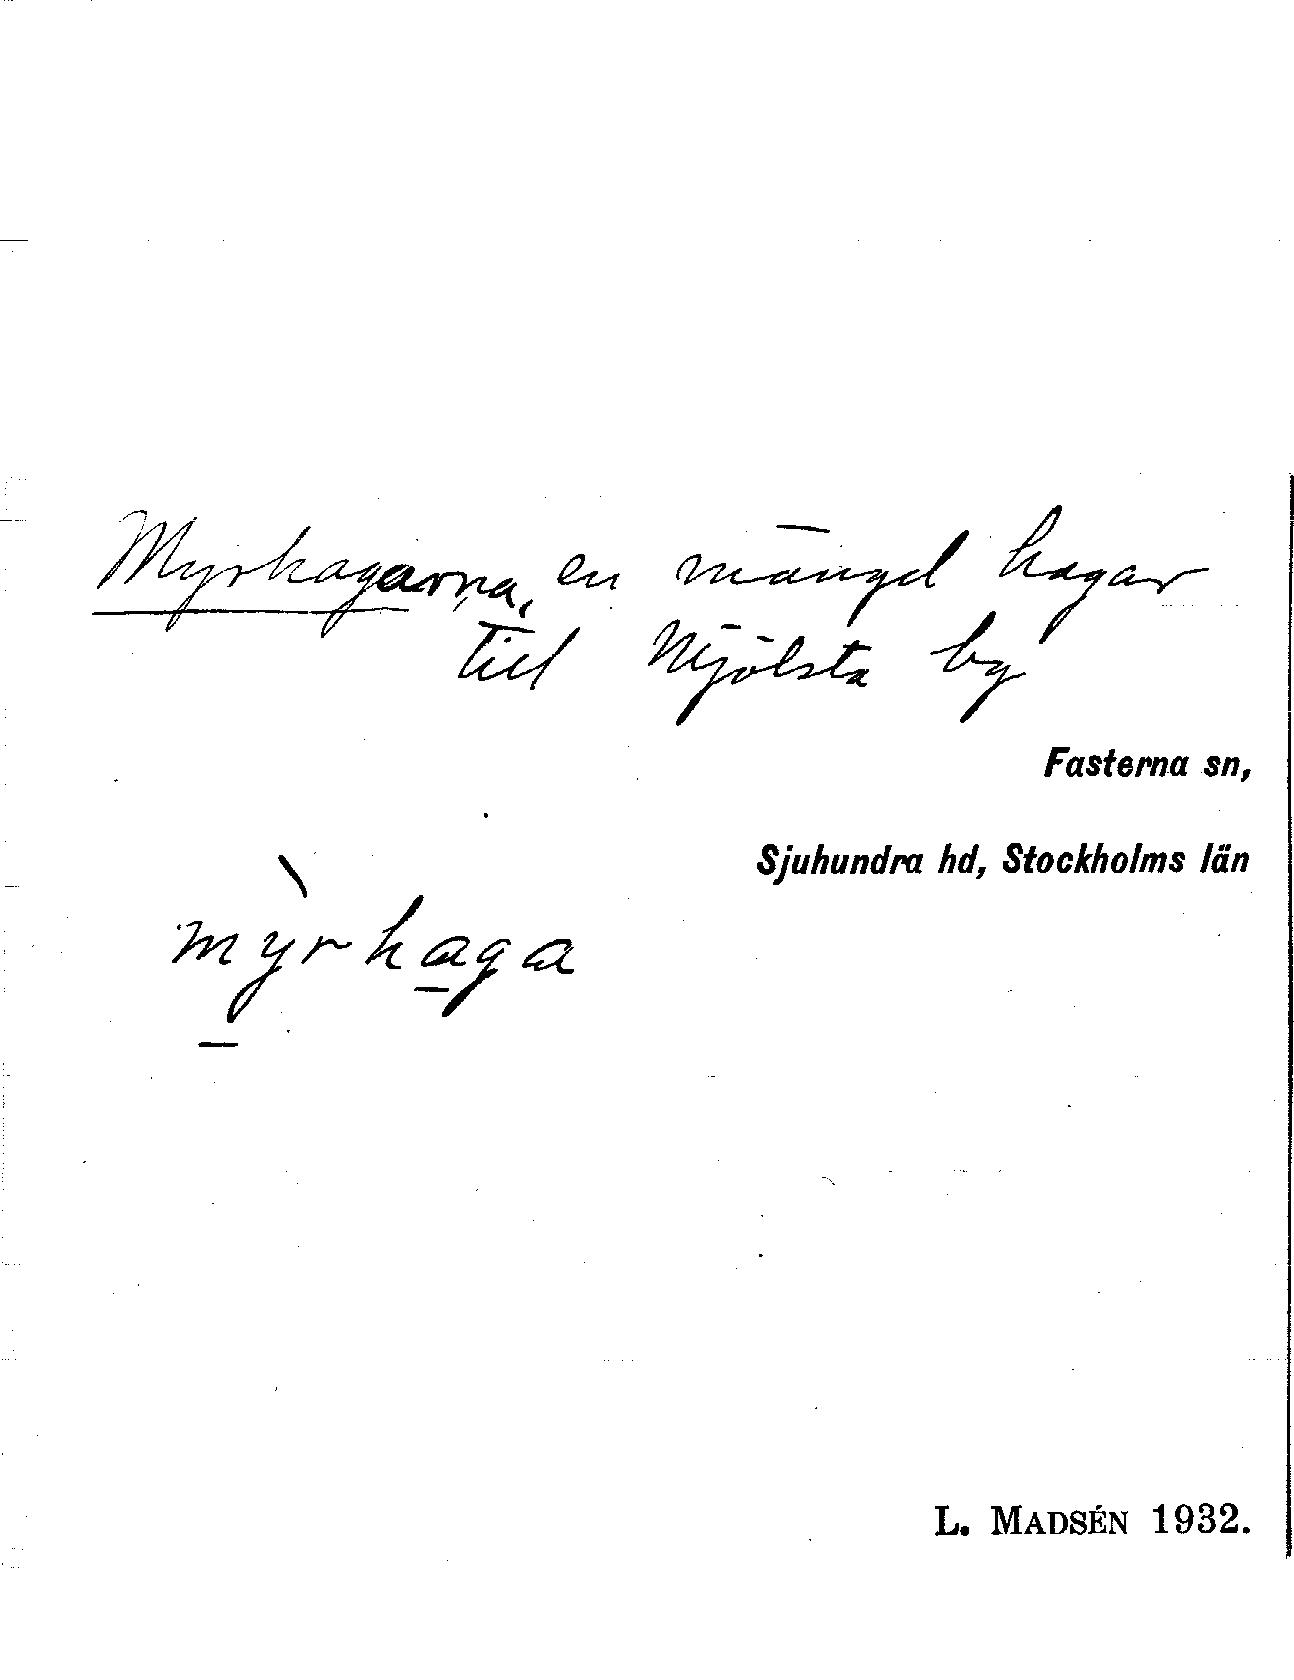 Myrhagarna, en mängd hagar
till Mjölsta by
Fasterna sn,
Sjuhundra hd, Stockholms län
mỳrhaga
L. MADSÉN 1932.